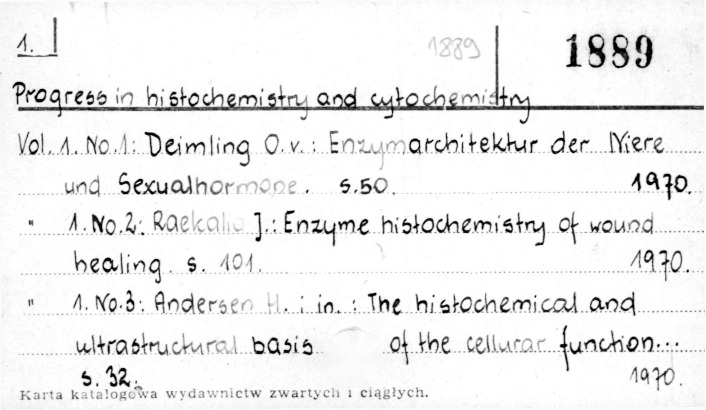 1.
1889 1889
Progress in histochemistry and cytochemistry
Vol. 1. No.1: Deimling O.v.: Enzymarchitektur der Niere
und Sexualhormone. s.50. 1970.
" 1. No.2: Raekalio J.: Enzyme histochemistry of wound
healing. s. 101. 1970.
" 1. No.3: Andersen H. i in.: The histochemical and
ultrastructural basis of the cellurar function...
s. 32. 1970.
Karta katalogowa wydawnictw zwartych i ciągłych.